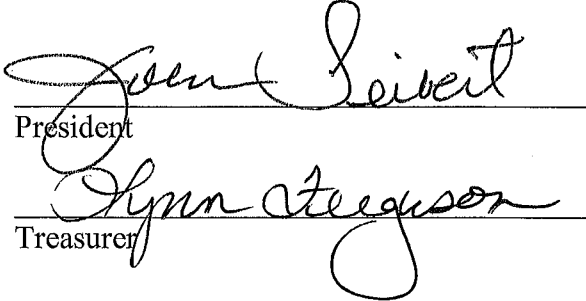 Joan Seibert
President
Lynn Ferguson
Treasurer